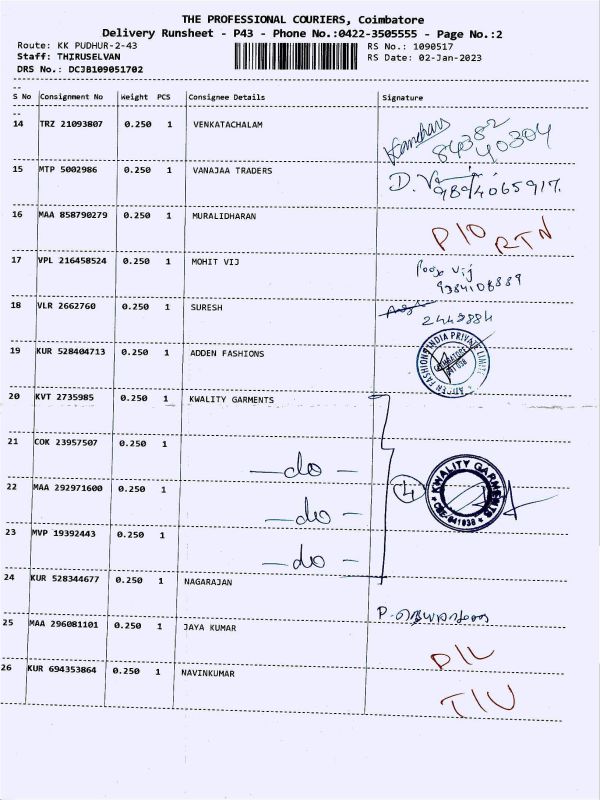 THE PROFESSIONAL COURIERS, Coimbatore
Delivery Runsheet - P43 - Phone No.:0422-3505555 - Page No.:2
Route: KK PUDHUR-2-43 RS No.: 1090517
Staff: THIRUSELVAN RS Date: 02-Jan-2023
DRS No.: DCJB109051702
--
S No Consignment No Weight PCS Consignee Details Signature
--
14 TRZ 21093807 0.250 1 VENKATACHALAM
84382
40304
15 MTP 5002986 0.250 1 VANAJAA TRADERS
9894065917.
16 MAA 858790279 0.250 1 MURALIDHARAN
P/O RTN
17 VPL 216458524 0.250 1 MOHIT VIJ
Pooja Vij
9384108889
18 VLR 2662760 0.250 1 SURESH
2449884
19 KUR 528404713 0.250 1 ADDEN FASHIONS
20 KVT 2735985 0.250 1 KWALITY GARMENTS
21 COK 23957507 0.250 1
—do—
22 MAA 292971600 0.250 1
—do—
4
KWALITY GARMENTS
CBE-641038
23 MVP 19392443 0.250 1
—do—
24 KUR 528344677 0.250 1 NAGARAJAN
25 MAA 296081101 0.250 1 JAYA KUMAR
D/L
26 KUR 694353864 0.250 1 NAVINKUMAR
T/U